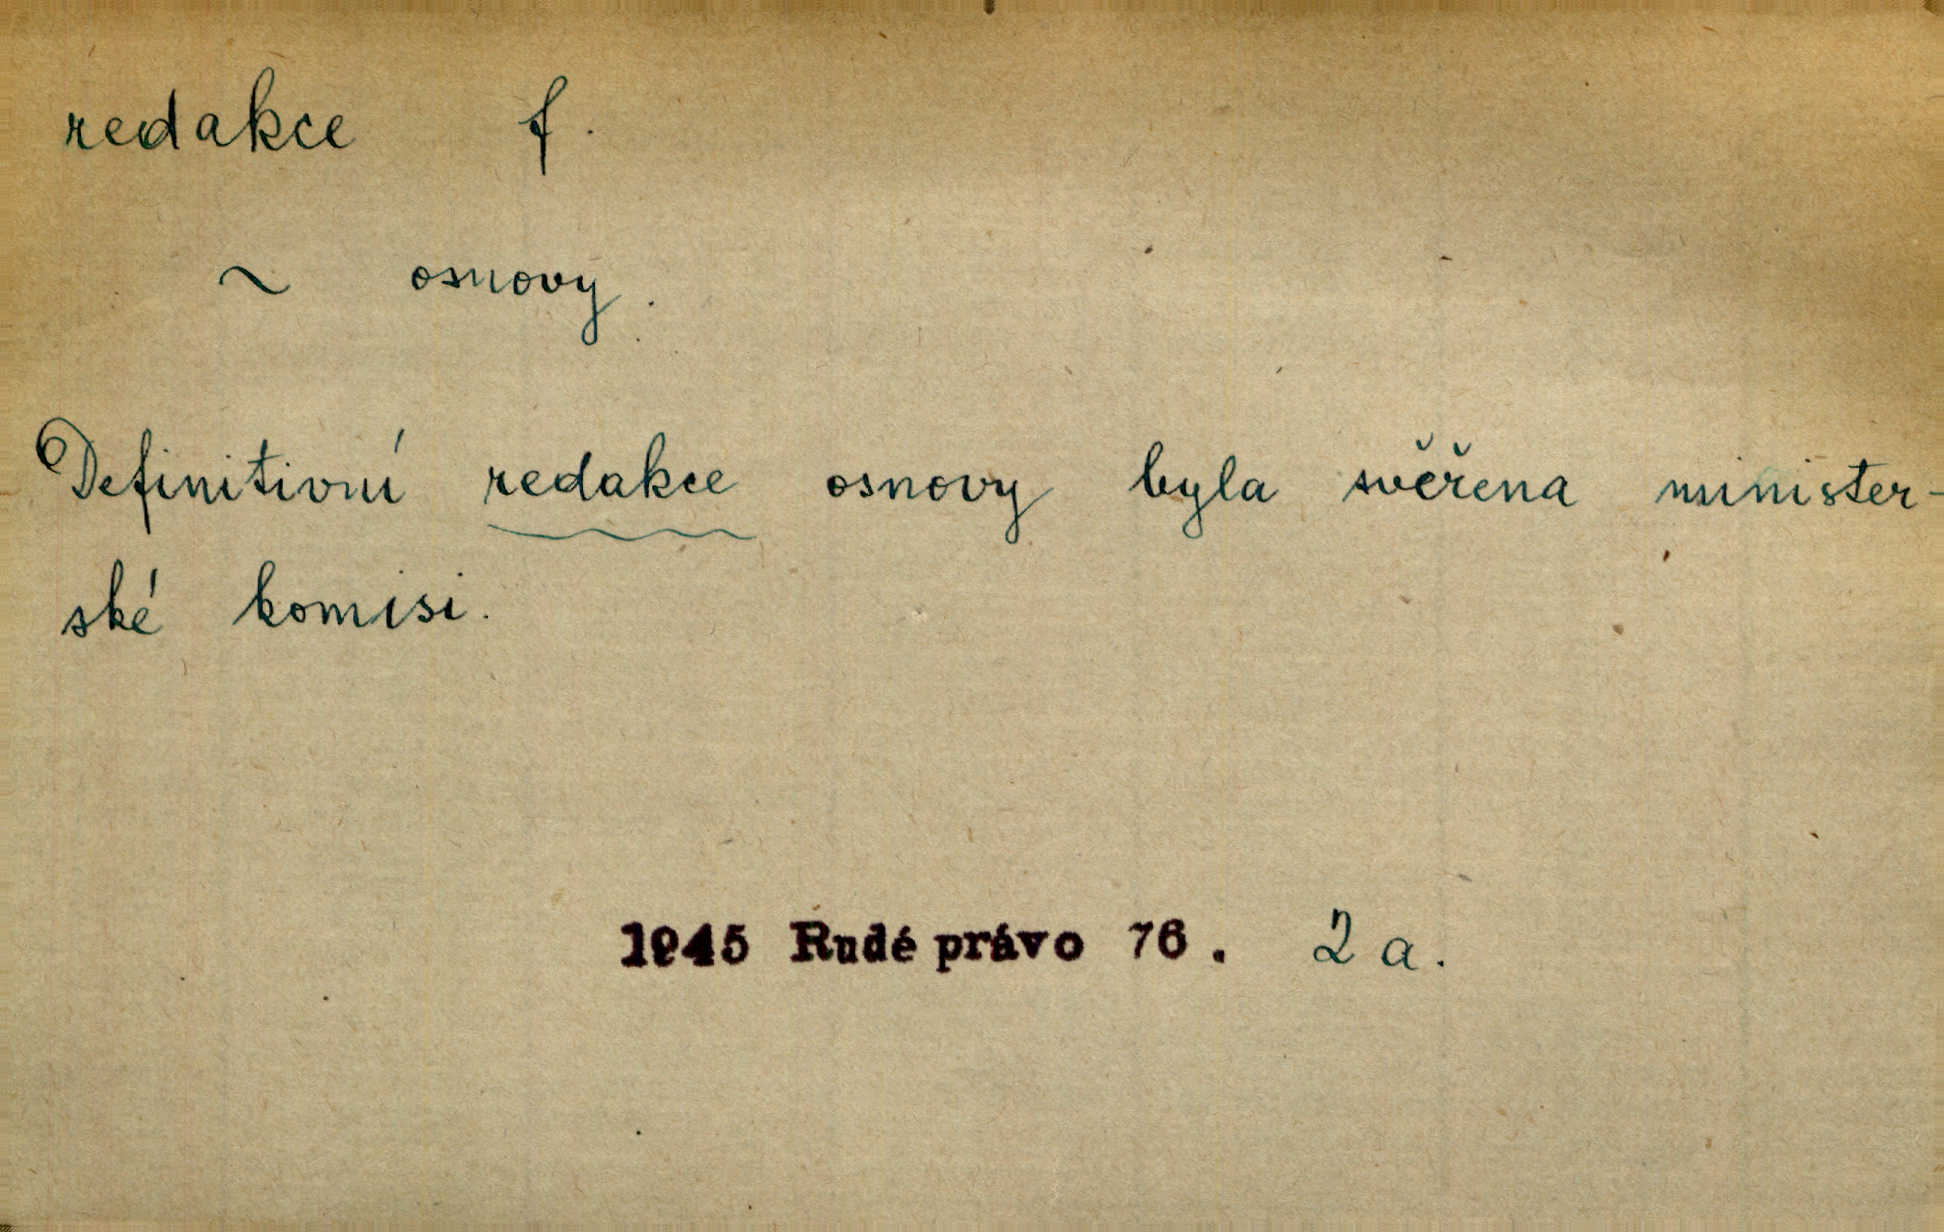 redakce f.
~ osnovy.
Definitivní redakce osnovy byla svěřena minister-
ské komisi.
1945 Rudé právo 76. 2a.